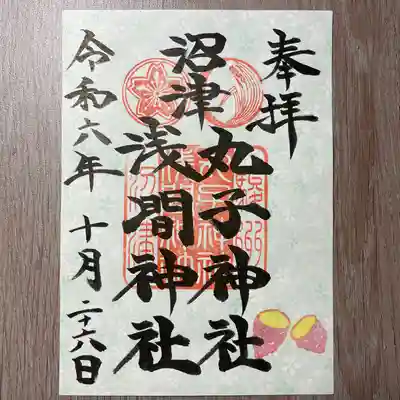 奉拝
沼津
丸子神社
浅間神社
令和六年
十月二十六日